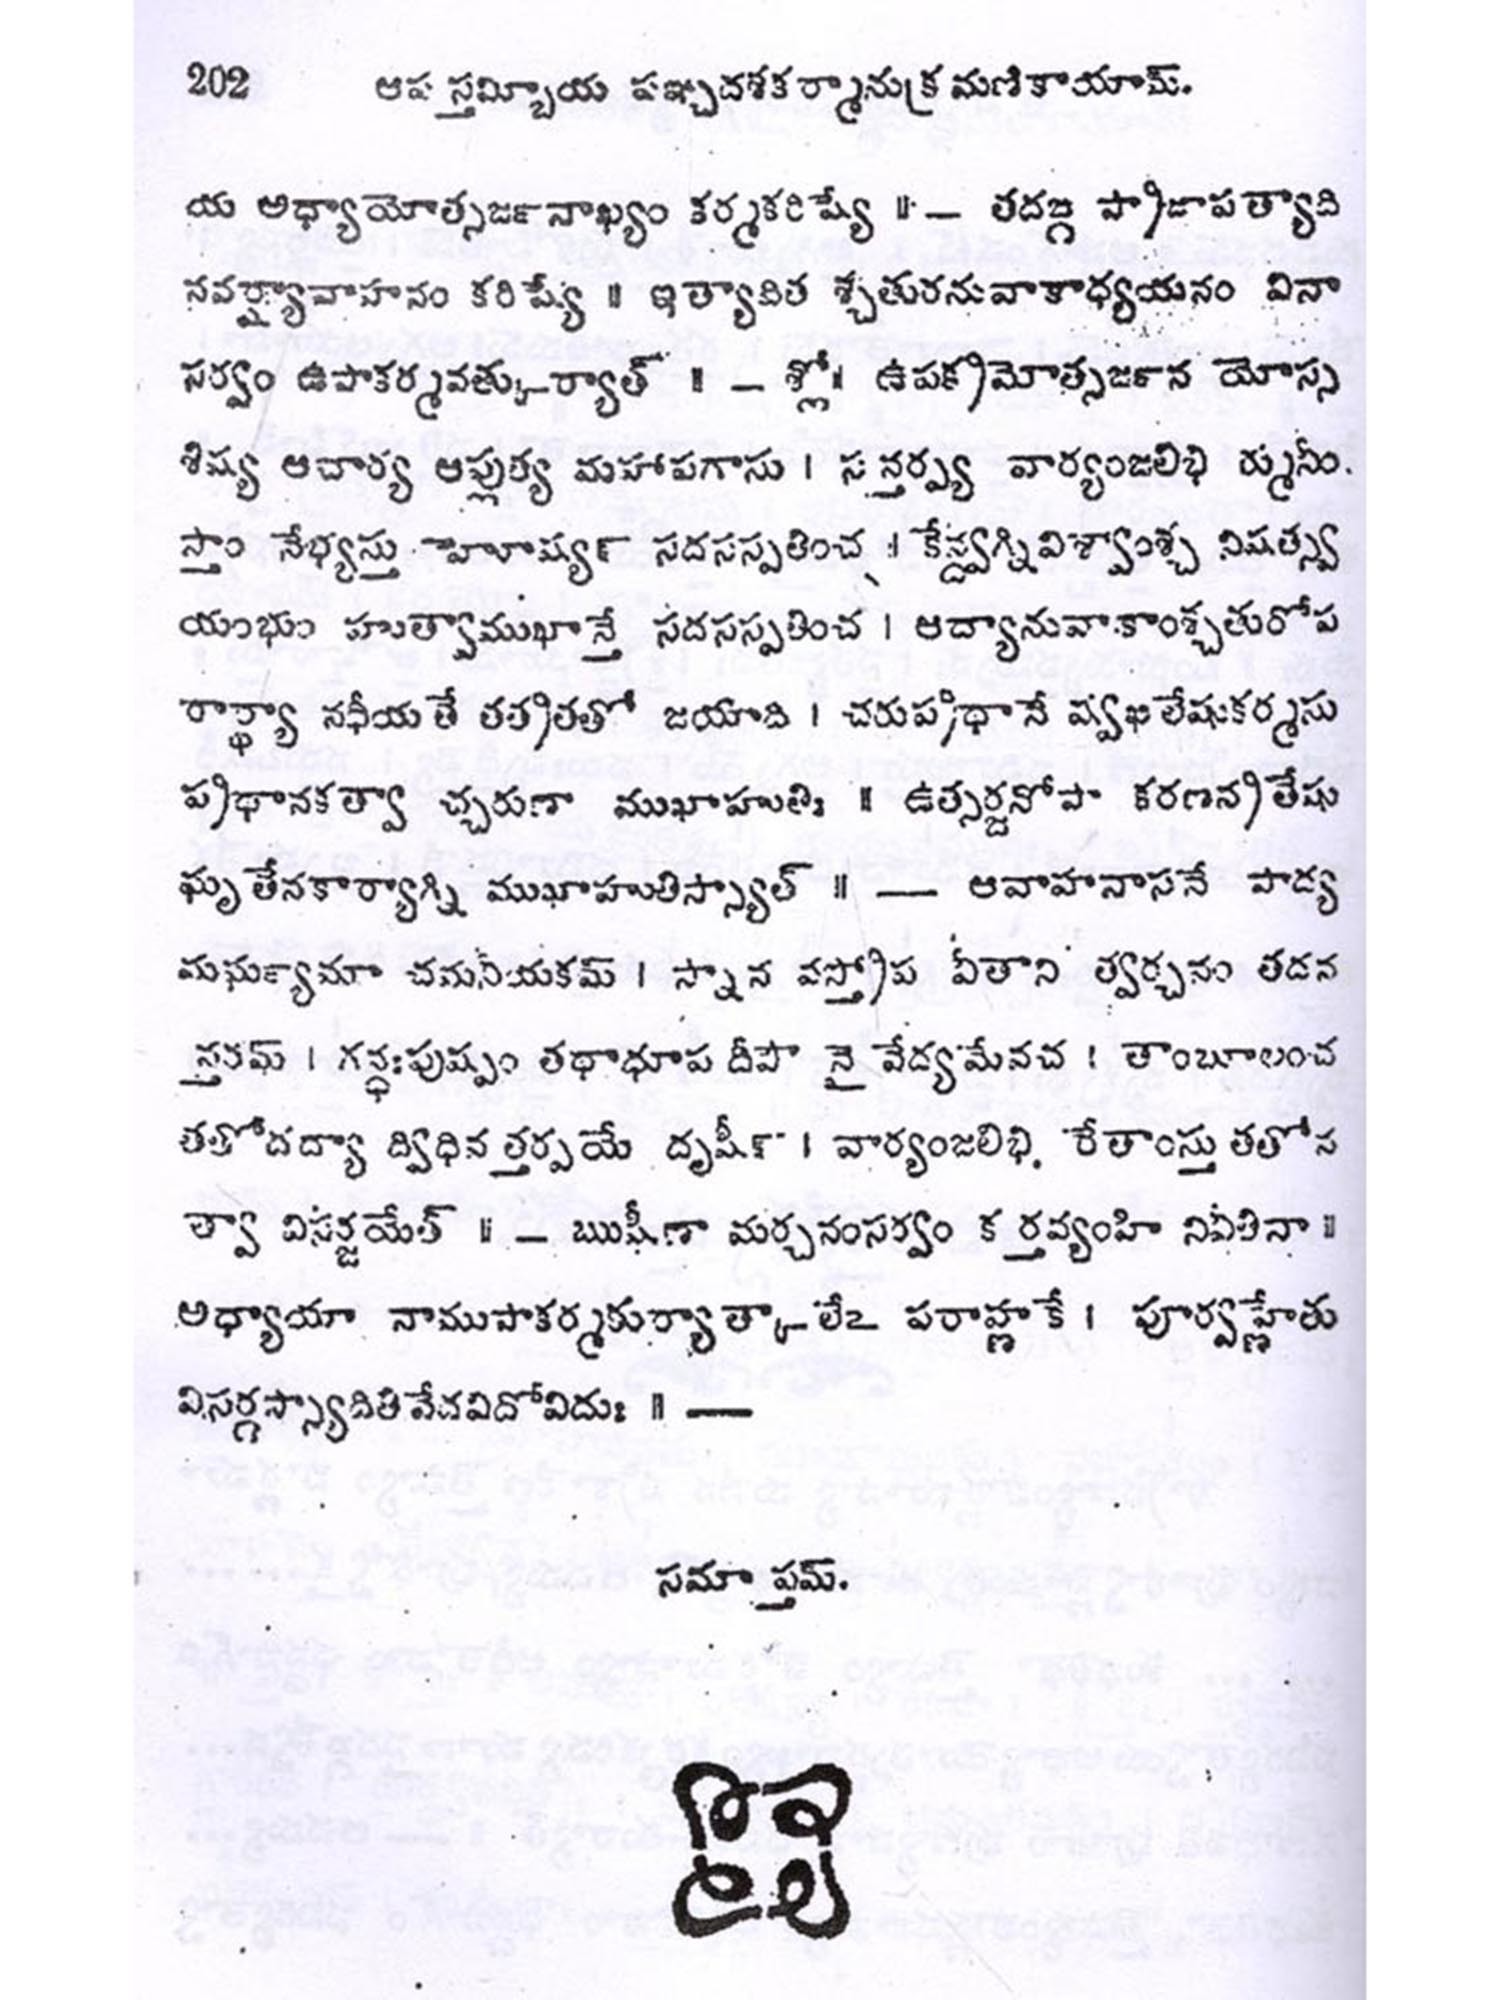 202 ఆప స్తమ్బీయ పఞ్చదశక ర్మానుక్ర మణికాయామ్.
య అధ్యాయోత్సజ౯నాఖ్యం కర్మకరిష్యే ॥ — తదఙ్గ ప్రాజాపత్యాది
నవర్ష్యావాహనం కరిష్యే ॥ ఇత్యాదిత శ్చతురనువాకాధ్యయనం వినా
సర్వం ఉపాకర్మవత్కుర్యాత్ ॥ — శ్లో॥ ఉపక్రమోత్సజ౯న యోస్స
శిష్య ఆచార్య ఆప్లుత్య మహాపగాసు । స న్తర్ప్య వార్యంజలిభి ర్మునీం.
స్తాం నేభ్యస్తు హెూష్య౯ సదసస్పతించ । కేన్ద్వగ్నివిశ్వాంశ్చ నిషత్స్వ
యంభుం హుత్వాముఖాన్తే సదసస్పతించ । ఆద్యానువాకాంశ్చతురోప
రాఞ్ఖ్యా నధీయతే తత్రితతో జయాది । చరుప్రధానే ష్వఖిలేషుకర్మసు
ప్రధానకత్వా చ్చరుణా ముఖాహుతిః ॥ ఉత్సర్జనోపా కరణవ్రతేషు
ఘృతేనకార్యాగ్ని ముఖాహుతిస్స్యాత్ ॥ — ఆవాహనాసనే పాద్య
మఘ౯్యమా చమనీయకమ్ । స్నాన వస్త్రోప వీతాని త్వర్చనం తదన
న్తరమ్ । గన్ధఃపుష్పం తథాధూప దీపౌ నై వేద్యమేవచ । తాంబూలంచ
తతోదద్యా ద్విధిన త్తర్పయే దృషీ౯ । వార్యంజలిభి రేతాంస్తు తతోన
త్వా విసర్జయేత్ ॥ — ఋషీణా మర్చనంసర్వం క ర్తవ్యంహి నివీతినా ॥
అధ్యాయా నాముపాకర్మకుర్యాత్కాలేఽ పరాహ్ణకే । పూర్వహ్ణేతు
విసర్గస్స్యాదితివేదవిదోవిదుః ॥ —
సమా ప్తమ్.